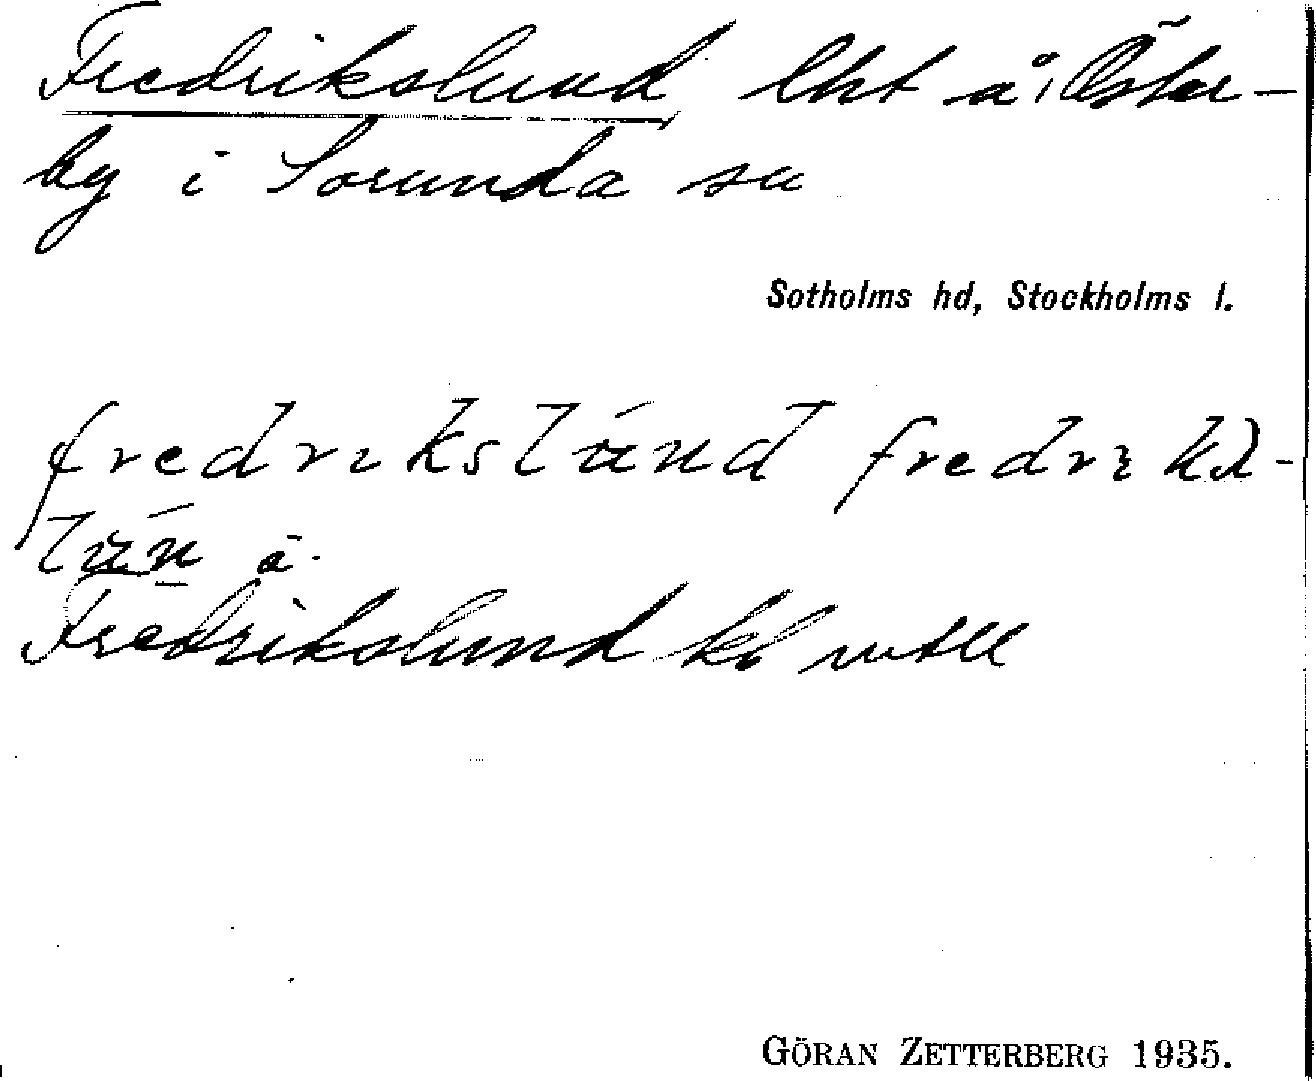 Fredrikslund lht å Öster-
by i Sorunda sn
Sotholms hd, Stockholms l.
fredrıkslúnd fredrık
lún
Fredrikslund
GÖRAN ZETTERBERG 1935.